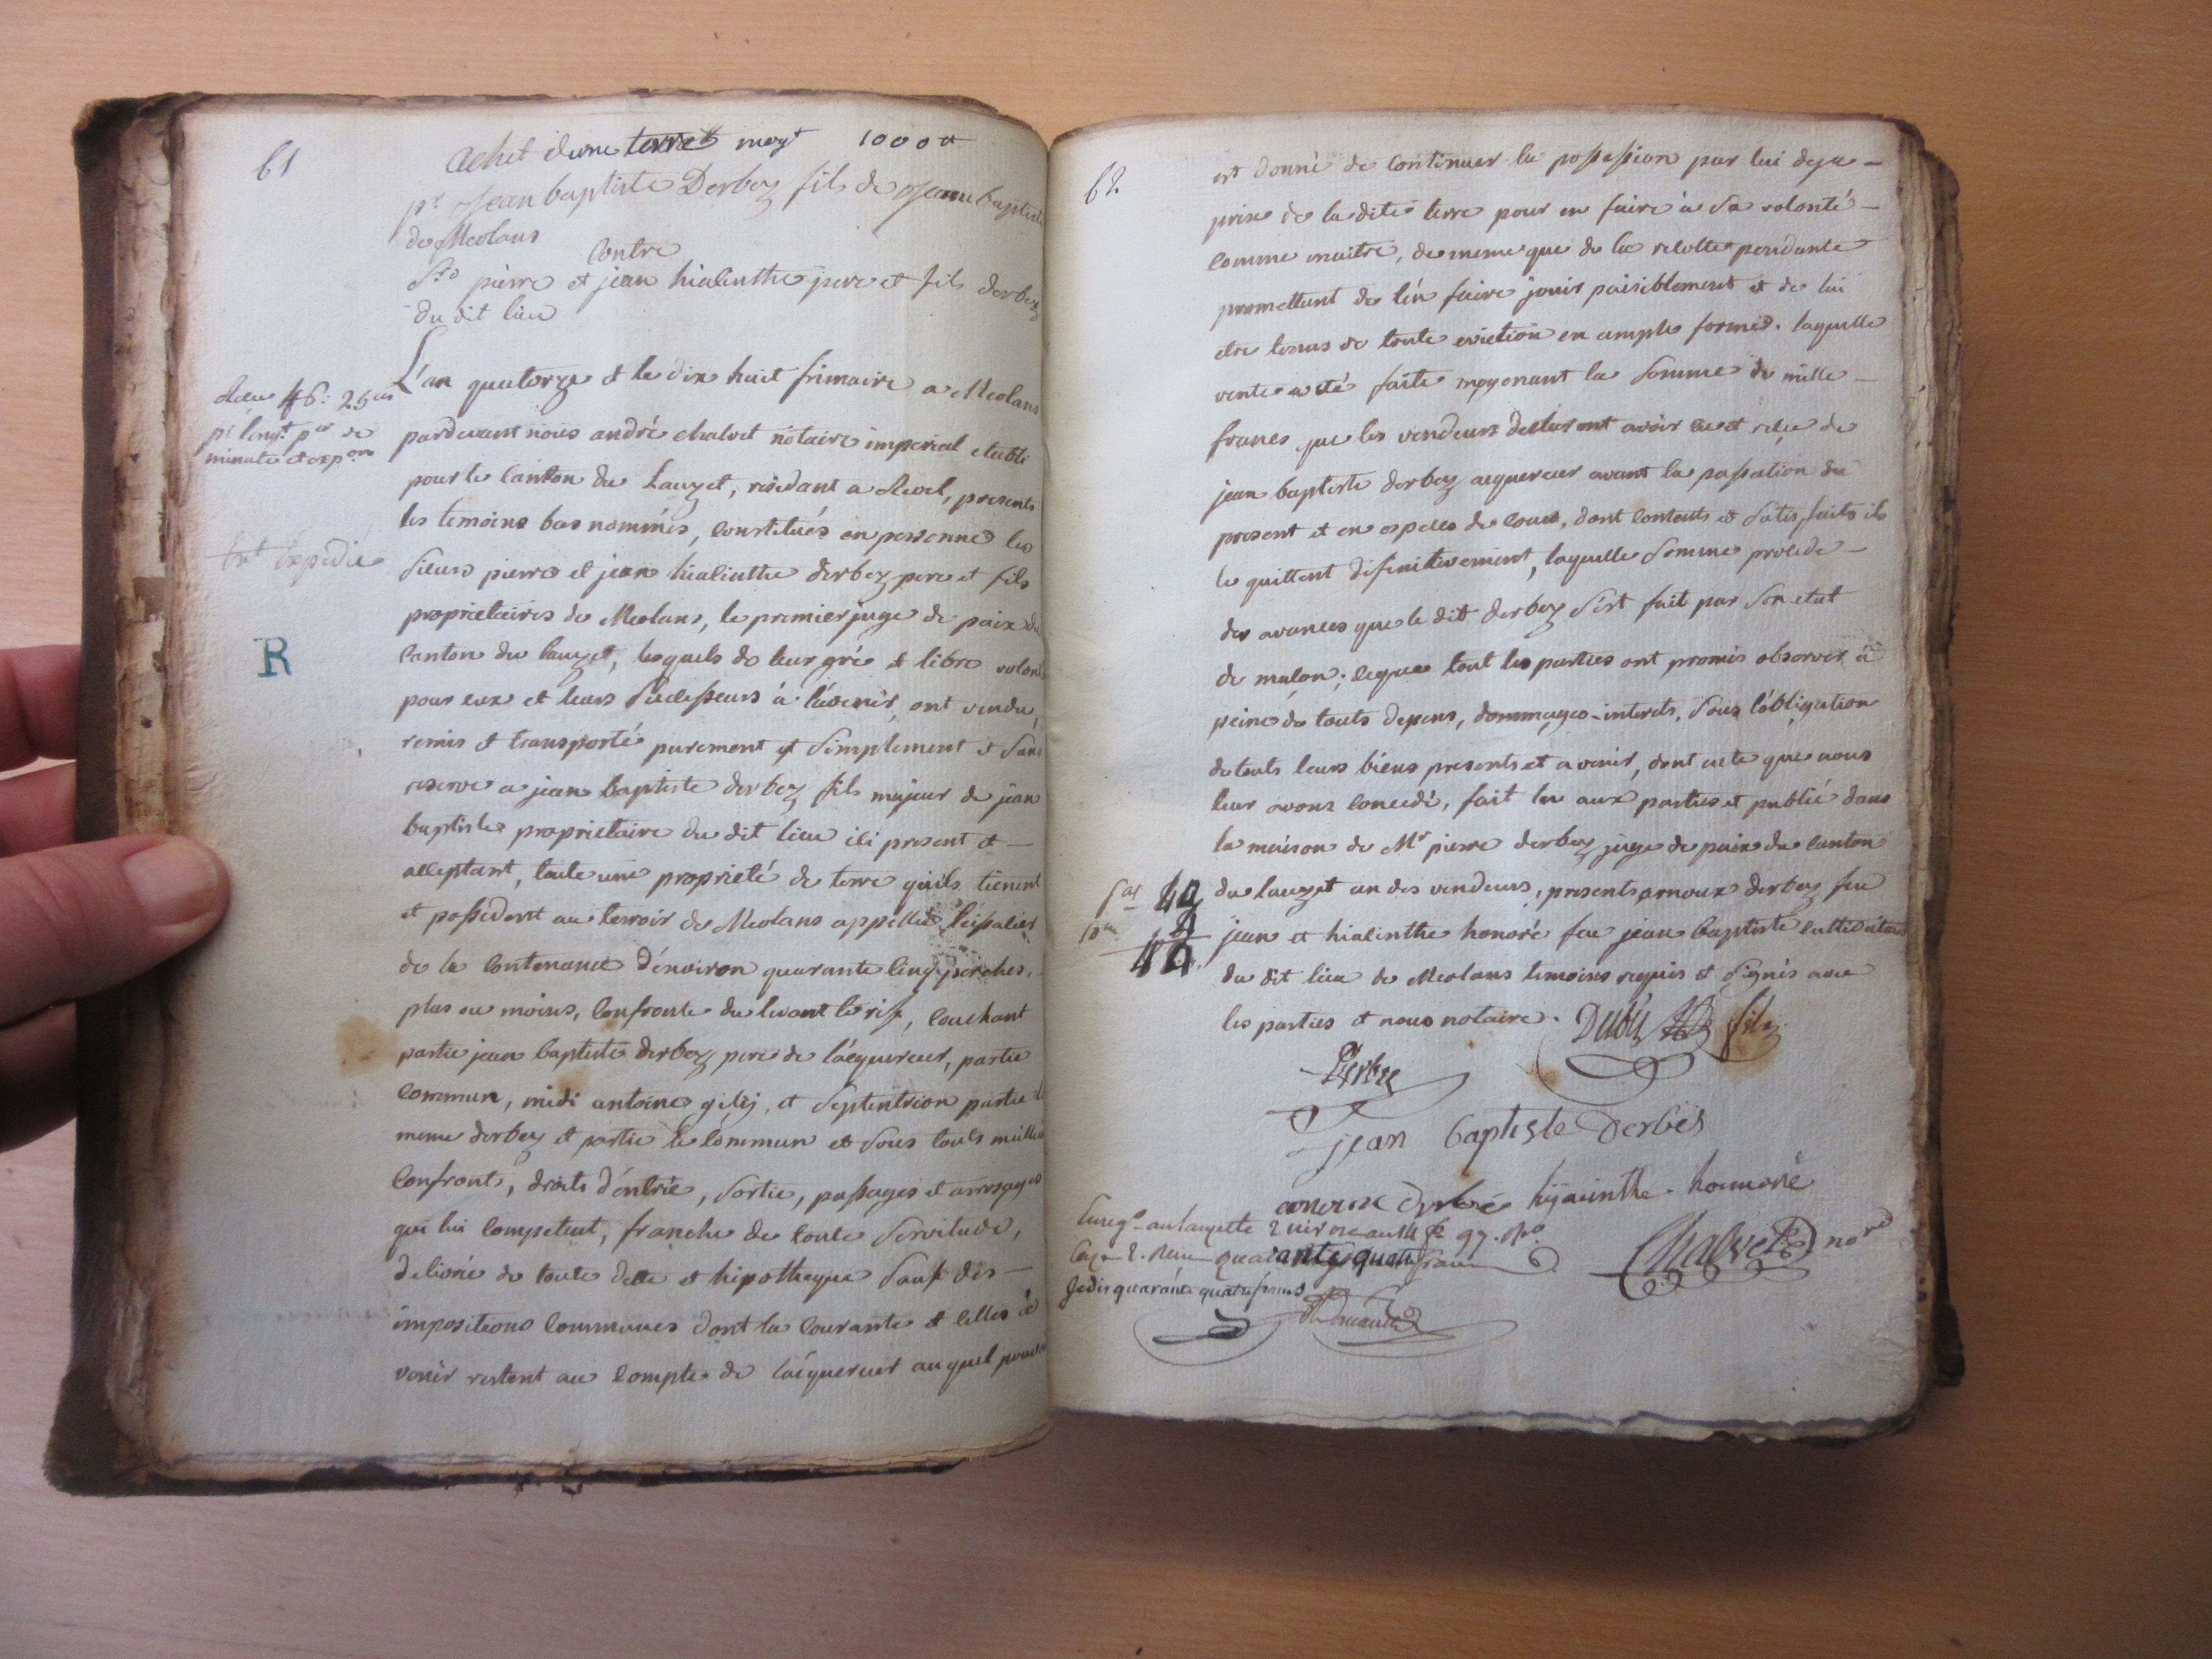 61
achet dune terre moyt 1000 #
pr Jean baptiste Derbez fils de Jean baptiste
de Meolans
Contre
Srs pierre et jean hiacinthe pere et fils derbez
du dit lieu
L'an quatorze et le dix huit frimaire a Meolans
pardevant nous andré chalvet notaire imperial etabli
pour le canton du Lauzet, residant a Revel, presents
les temoins bas nommés, constitués en personne les
sieurs pierre et jean hiacinthe derbez pere et fils
proprietaires de Meolans, le premier juge de paix du
canton du lauzet, lesquels de leur gré et libre volonté
pour eux et leurs successeurs à l'avenir, ont vendu,
remis et transporté purement et simplement et sans
reserve a jean baptiste derbez fils majeur de jean
baptiste proprietaire du dit lieu ici present et
acceptant, toute une proprieté de terre qu'ils tienent
et possedent au terroir de Meolans appellée
de la contenance d'environ quarante cinq perches,
plus ou moins, confronte du levant le rif, couchant
partie jean baptiste derbez pere de l'acquereur, partie
commun, midi antoine gilij, et septentrion partie le
meme derbez et partie le commun et sous touts meilleurs
confronts, droits d'entrée, sortie, passages et arrosages
qui lui competent, franche de toute servitude,
delivrée de toute dette et hipotheque sauf des
impositions communes dont la courante et celles à
venir restent au compte de l'acquereur auquel pouvoir
Recu 46: 25
pr l'engt
minute et expon
Ext Expedié
R
62
est donné de continuer la possession par lui deja
prise de la dite terre pour en faire à sa volonté
comme maitre, de meme que de la recolte pendante
promettant de l'en faire jouir paisiblement et de lui
etre tenus de toute eviction en ample forme. laquelle
vente a été faite moyenant la somme de mille
francs que les vendeurs declarent avoir eu et reçu de
jean baptiste derbez acquereur avant la passation du
present et en especes de cours, dont contents et satisfaits ils
le quittent definitivement, laquelle somme procede
des avances que le dit derbez s'est fait par son etat
de maçon; ce que tout les parties ont promis observer à
peine de touts depens, dommages-interets, sous l'obligation
de touts leurs biens presents et a venir, dont acte que nous
leur avons concedé, fait lu aux parties et publié dans
la maison de Mr pierre derbez juge de paix du canton
du lauzet un des vendeurs, presents arnoux derbez feu
jean et hiacinthe honoré feu jean baptiste cultivateurs
du dit lieu de Meolans temoins requis et signés avec
les parties et nous notaire.
40
4
44
Derbez
fils
jean baptiste Derbès
arnoux Derbés hyacinthe honnoré
Chalvet nore
Enregé au lauzette 2 nivose an 14 fo 97. Ro
Cas 2. Recu quarante quatre francs
Je dis quarante quatre francs